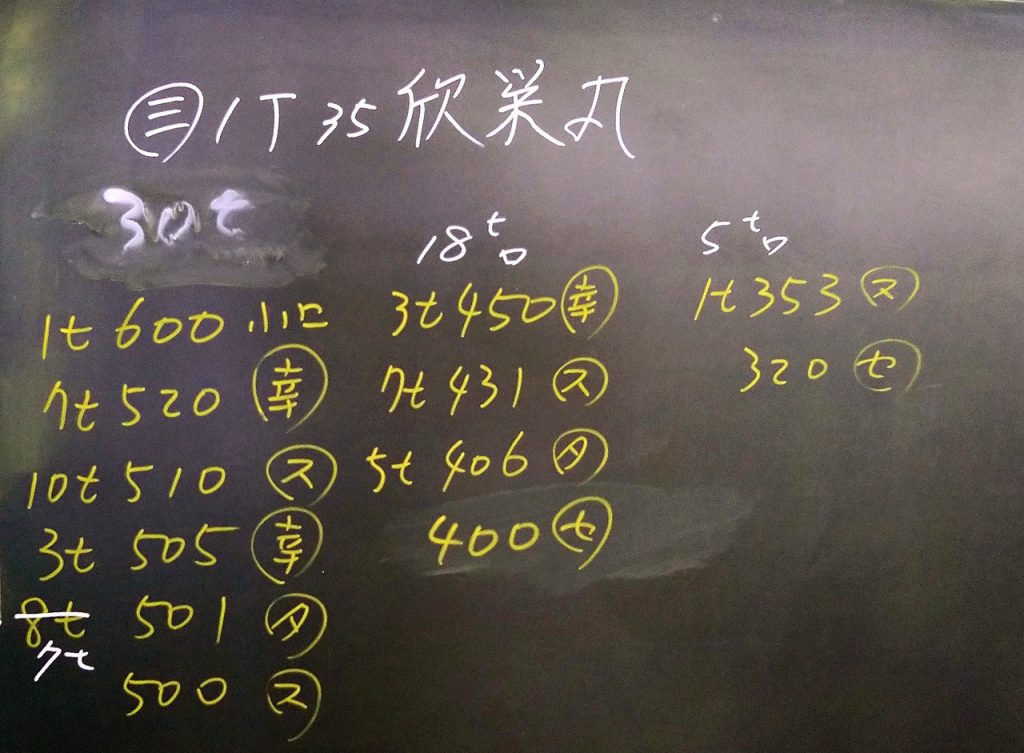 ㊂1T35欣栄丸
30t
1t 600 小口
7t 520 幸
10t 510 ス
3t 505 幸
8t 501 タ
7t
500 ス
18t口
3t 450 幸
7t 431 ス
5t 406 タ
400 セ
5t口
1t 353 ヌ
320 セ